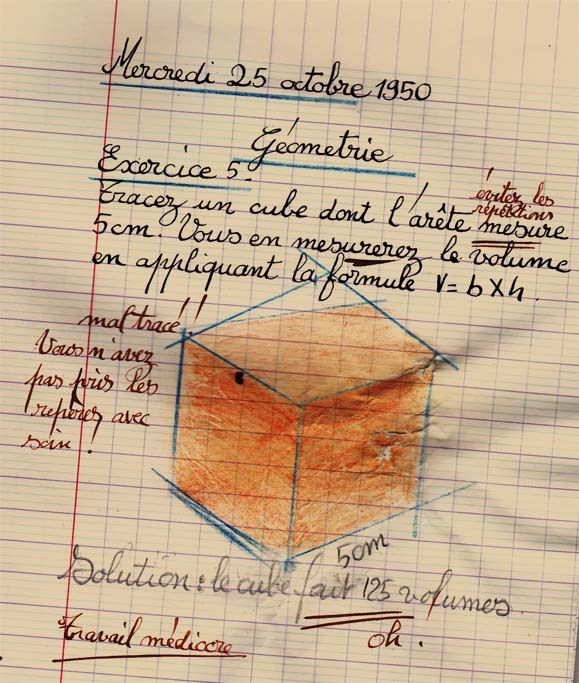 Mercredi 25 octobre 1950
Géometrie
Exercice 5.
éviter les
répétitions
Tracez un cube dont l'arête mesure
5cm. Vous en mesurerez le volume
en appliquant la formule V = b x h.
mal tracé!!
Vous n'avez
pas pris les
repères avec
soin!
5cm
Solution: le cube fait 125 volumes.
oh.
travail médiocre